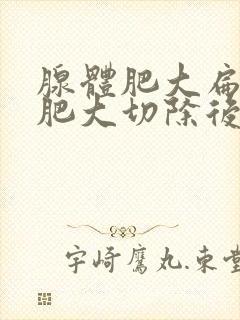 腺體肥大扁
肥大切除後
宇崎鷹丸.束堂